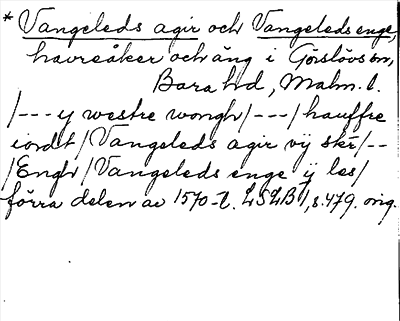 * Vangeleds agir och Vangeleds enge,
havreåker och äng i Görslövs sn,
Bara hd, Malm. l.
/--- y westre wongh/---/hauffre
iordt/Vangeleds agir vÿ skr/--
/Engh/Vangeleds enge ÿ les/
förra delen av 1570-t. LSLB 1, s. 479. orig.